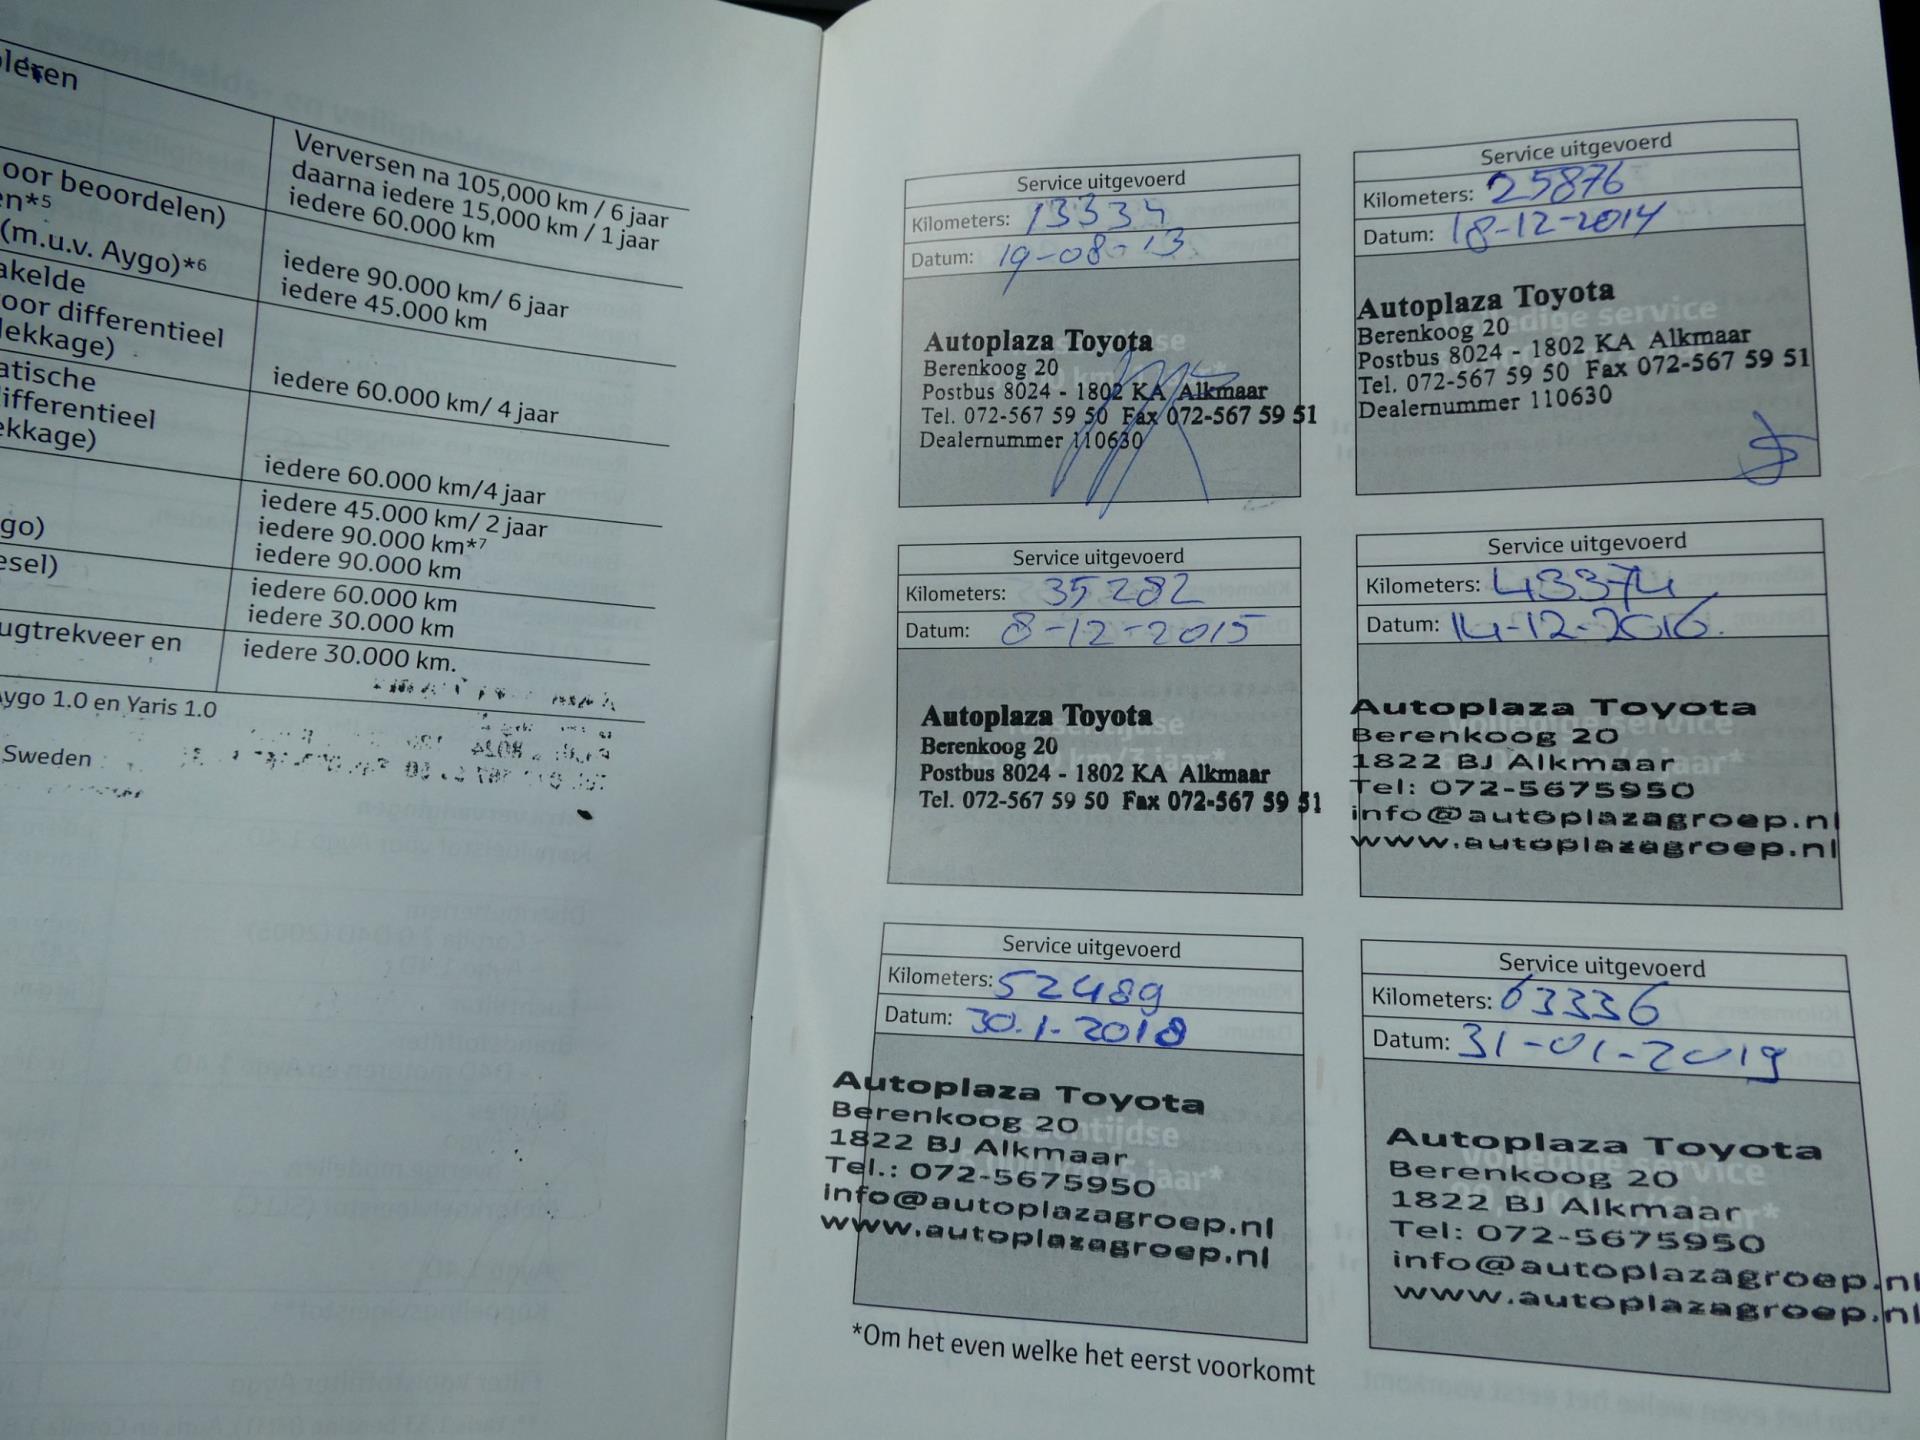 oleren
Verversen na 105,000 km / 6 jaar
daarna iedere 15,000 km / 1 jaar
oor beoordelen)
iedere 60.000 km
en*5
(m.u.v. Aygo)*6
iedere 90.000 km/ 6 jaar
akelde
iedere 45.000 km
oor differentieel
lekkage)
atische
iedere 60.000 km/ 4 jaar
ifferentieel
ekkage)
iedere 60.000 km/4 jaar
iedere 45.000 km/ 2 jaar
go)
iedere 90.000 km*7
esel)
iedere 90.000 km
iedere 60.000 km
iedere 30.000 km
ugtrekveer en
iedere 30.000 km.
Aygo 1.0 en Yaris 1.0
Sweden
Service uitgevoerd
Kilometers: 13334
Datum: 19-08-13
Tussentijdse
Autoplaza Toyota
Berenkoog 20
Postbus 8024 - 1802 KA Alkmaar
Tel. 072-567 59 50 Fax 072-567 59 51
Dealernummer 110630
Service uitgevoerd
Kilometers: 25876
Datum: 18-12-2014
Volledige service
Autoplaza Toyota
Berenkoog 20
Postbus 8024 - 1802 KA Alkmaar
Tel. 072-567 59 50 Fax 072-567 59 51
Dealernummer 110630
Service uitgevoerd
Kilometers: 35282
Datum: 8-12-2015
Tussentijdse
45.000 km/3 jaar*
Autoplaza Toyota
Berenkoog 20
Postbus 8024 - 1802 KA Alkmaar
Tel. 072-567 59 50 Fax 072-567 59 51
Service uitgevoerd
Kilometers: 43374
Datum: 14-12-2016.
Volledige service
60.000 km/4 jaar*
Autoplaza Toyota
Berenkoog 20
1822 BJ Alkmaar
Tel: 072-5675950
info@autoplazagroep.nl
www.autoplazagroep.nl
Service uitgevoerd
Kilometers: 52489
Datum: 30.1.2018
Tussentijdse
75.000 km/5 jaar*
Autoplaza Toyota
Berenkoog 20
1822 BJ Alkmaar
Tel.: 072-5675950
info@autoplazagroep.nl
www.autoplazagroep.nl
Service uitgevoerd
Kilometers: 63336
Datum: 31-01-2019
Volledige service
90.000 km/6 jaar*
Autoplaza Toyota
Berenkoog 20
1822 BJ Alkmaar
Tel: 072-5675950
info@autoplazagroep.nl
www.autoplazagroep.nl
*Om het even welke het eerst voorkomt